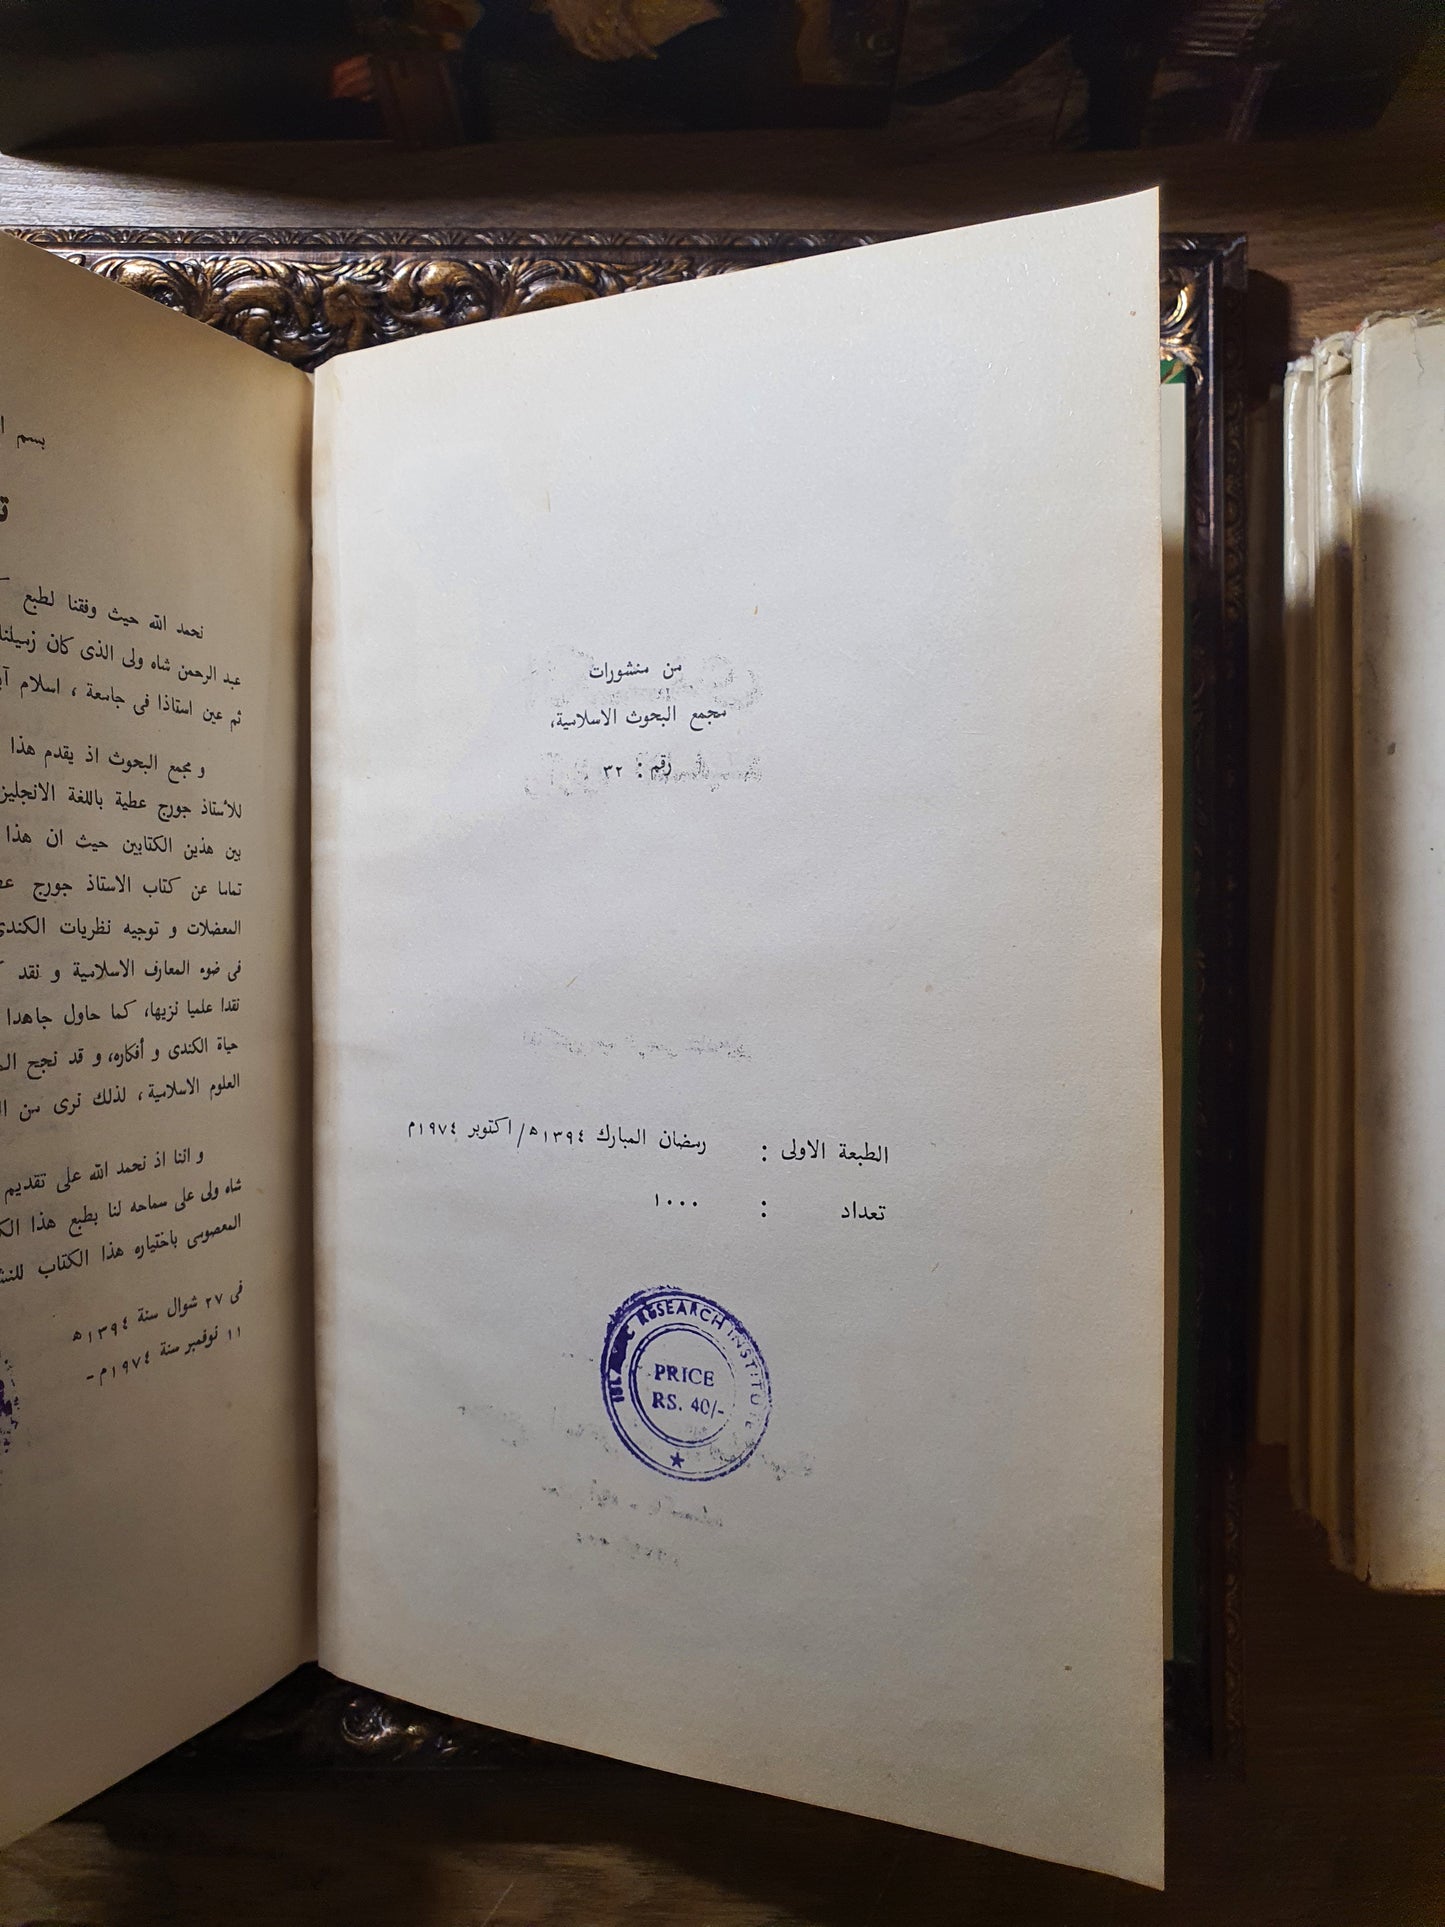 من منشورات
مجمع البحوث الاسلامية،
رقم : ٣٢
الطبعة الاولى : رمضان المبارك ١٣٩٤ھ/اكتوبر ١٩٧٤م
تعداد : ١٠٠٠
ISLAMIC RESEARCH INSTITUTE
PRICE
RS. 40/-
بسم
نحمد الله حيث وفقنا لطبع
عبد الرحمن شاه ولى الذى كان زميلنا
ثم عين استاذا فى جامعة ، اسلام
و مجمع البحوث اذ يقدم هذا
للأستاذ جورج عطية باللغة
بين هذين الكتابين حيث ان هذا
تماما عن كتاب الاستاذ جورج
المعضلات و توجيه نظريات الكندى
فى ضوء المعارف الاسلامية و نقد
نقدا علميا نزيها، كما حاول جاهدا
حياة الكندى و أفكاره، و قد نجح
العلوم الاسلامية ، لذلك نرى من
و اننا اذ نحمد الله على تقديم
شاه ولى على سماحه لنا بطبع هذا
المعصومى باختياره هذا الكتاب
فى ٢٧ شوال سنة ١٣٩٤ھ
١١ نوفمبر سنة ١٩٧٤م-